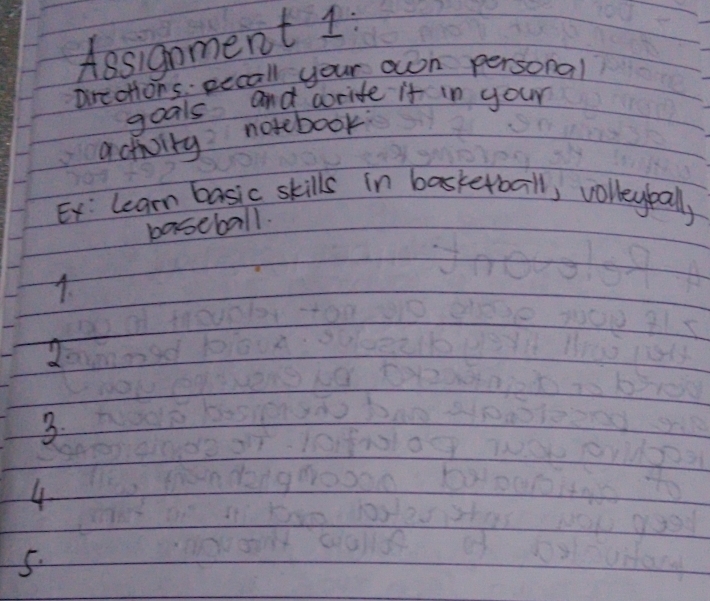 Assignment 1:
Directions: Recall your own personal
goals and write it in your
activity notebook.
Ex: Learn basic skills in basketball, volleyball,
baseball.
1.
2.
3.
4
5.